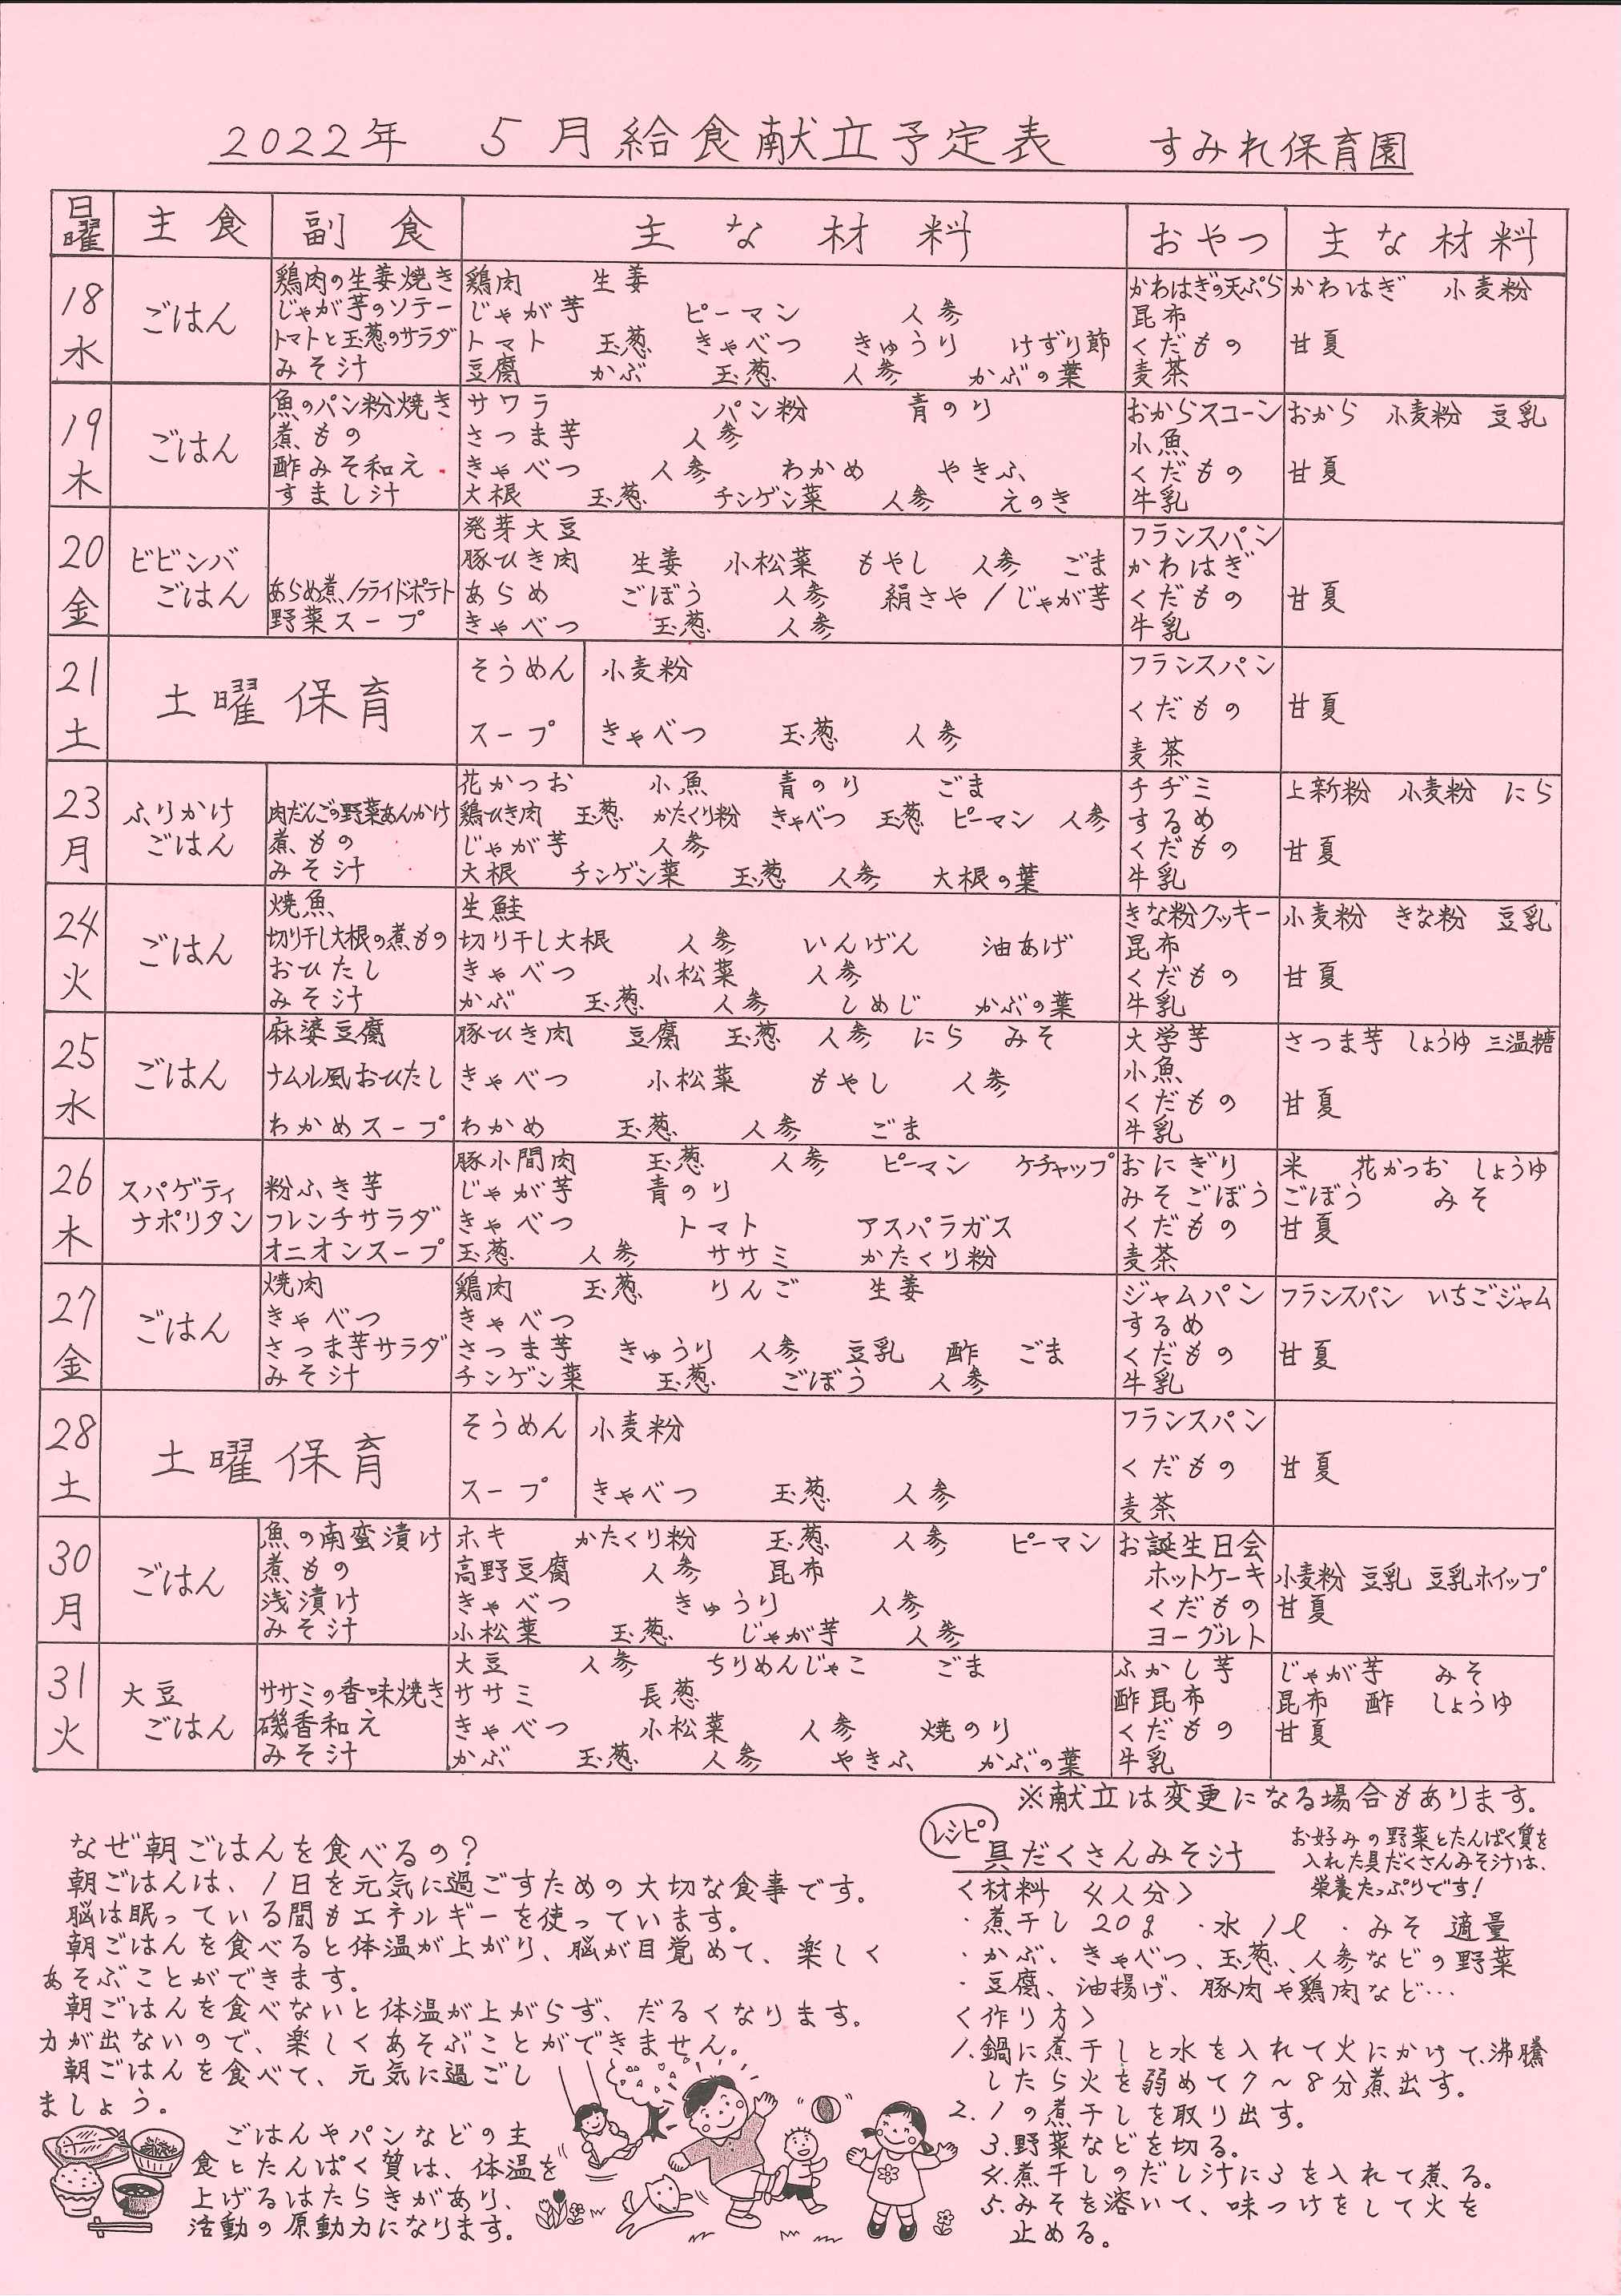 2022年 5月給食献立予定表 すみれ保育園
日曜 主食 副食 主な材料 おやつ 主な材料
18 水 ごはん
鶏肉の生姜焼き 鶏肉 生姜 かわはぎの天ぷら かわはぎ 小麦粉
じゃが芋のソテー じゃが芋 ピーマン 人参 昆布
トマトと玉葱のサラダ トマト 玉葱 きゃべつ きゅうり けずり節 くだもの 甘夏
みそ汁 豆腐 かぶ 玉葱 人参 かぶの葉 麦茶
19 木 ごはん
魚のパン粉焼き サワラ パン粉 青のり おからスコーン おから 小麦粉 豆乳
煮もの さつま芋 人参 小魚
酢みそ和え きゃべつ 人参 わかめ やきふ くだもの 甘夏
すまし汁 大根 玉葱 チンゲン菜 人参 えのき 牛乳
20 金 ビビンバ ごはん
発芽大豆 フランスパン
豚ひき肉 生姜 小松菜 もやし 人参 ごま かわはぎ
あらめ煮/フライドポテト あらめ ごぼう 人参 絹さや/じゃが芋 くだもの 甘夏
野菜スープ きゃべつ 玉葱 人参 牛乳
21 土 土曜保育
そうめん 小麦粉 フランスパン
くだもの 甘夏
スープ きゃべつ 玉葱 人参 麦茶
23 月 ふりかけ ごはん
花かつお 小魚 青のり ごま チヂミ 上新粉 小麦粉 にら
肉だんごの野菜あんかけ 鶏ひき肉 玉葱 かたくり粉 きゃべつ 玉葱 ピーマン 人参 するめ
煮もの じゃが芋 人参 くだもの 甘夏
みそ汁 大根 チンゲン菜 玉葱 人参 大根の葉 牛乳
24 火 ごはん
焼魚 生鮭 きな粉クッキー 小麦粉 きな粉 豆乳
切り干し大根の煮もの 切り干し大根 人参 いんげん 油あげ 昆布
おひたし きゃべつ 小松菜 人参 くだもの 甘夏
みそ汁 かぶ 玉葱 人参 しめじ かぶの葉 牛乳
25 水 ごはん
麻婆豆腐 豚ひき肉 豆腐 玉葱 人参 にら みそ 大学芋 さつま芋 しょうゆ 三温糖
小魚
ナムル風おひたし きゃべつ 小松菜 もやし 人参 くだもの 甘夏
わかめスープ わかめ 玉葱 人参 ごま 牛乳
26 木 スパゲティ ナポリタン
豚小間肉 玉葱 人参 ピーマン ケチャップ おにぎり 米 花かつお しょうゆ
粉ふき芋 じゃが芋 青のり みそごぼう ごぼう みそ
フレンチサラダ きゃべつ トマト アスパラガス くだもの 甘夏
オニオンスープ 玉葱 人参 ササミ かたくり粉 麦茶
27 金 ごはん
焼肉 鶏肉 玉葱 りんご 生姜 ジャムパン フランスパン いちごジャム
きゃべつ きゃべつ するめ
さつま芋サラダ さつま芋 きゅうり 人参 豆乳 酢 ごま くだもの 甘夏
みそ汁 チンゲン菜 玉葱 ごぼう 人参 牛乳
28 土 土曜保育
そうめん 小麦粉 フランスパン
くだもの 甘夏
スープ きゃべつ 玉葱 人参 麦茶
30 月 ごはん
魚の南蛮漬け ホキ かたくり粉 玉葱 人参 ピーマン お誕生日会
煮もの 高野豆腐 人参 昆布 ホットケーキ 小麦粉 豆乳 豆乳ホイップ
浅漬け きゃべつ きゅうり 人参 くだもの 甘夏
みそ汁 小松菜 玉葱 じゃが芋 人参 ヨーグルト
31 火 大豆 ごはん
大豆 人参 ちりめんじゃこ ごま ふかし芋 じゃが芋 みそ
ササミの香味焼き ササミ 長葱 酢昆布 昆布 酢 しょうゆ
磯香和え きゃべつ 小松菜 人参 焼のり くだもの 甘夏
みそ汁 かぶ 玉葱 人参 やきふ かぶの葉 牛乳
※献立は変更になる場合もあります。
なぜ朝ごはんを食べるの?
朝ごはんは、1日を元気に過ごすための大切な食事です。
脳は眠っている間もエネルギーを使っています。
朝ごはんを食べると体温が上がり、脳が目覚めて、楽しく
あそぶことができます。
朝ごはんを食べないと体温が上がらず、だるくなります。
力が出ないので、楽しくあそぶことができません。
朝ごはんを食べて、元気に過ごし
ましょう。
ごはんやパンなどの主
食とたんぱく質は、体温を
上げるはたらきがあり、
活動の原動力になります。
レシピ
具だくさんみそ汁
お好みの野菜とたんぱく質を
入れた具だくさんみそ汁は、
栄養たっぷりです!
<材料 4人分>
・煮干し 20g ・水 1ℓ ・みそ 適量
・かぶ、きゃべつ、玉葱、人参などの野菜
・豆腐、油揚げ、豚肉や鶏肉など…
<作り方>
1.鍋に煮干しと水を入れて火にかけて、沸騰
したら火を弱めて7〜8分煮出す。
2.1の煮干しを取り出す。
3.野菜などを切る。
4.煮干しのだし汁に3を入れて煮る。
5.みそを溶いて、味つけをして火を
止める。